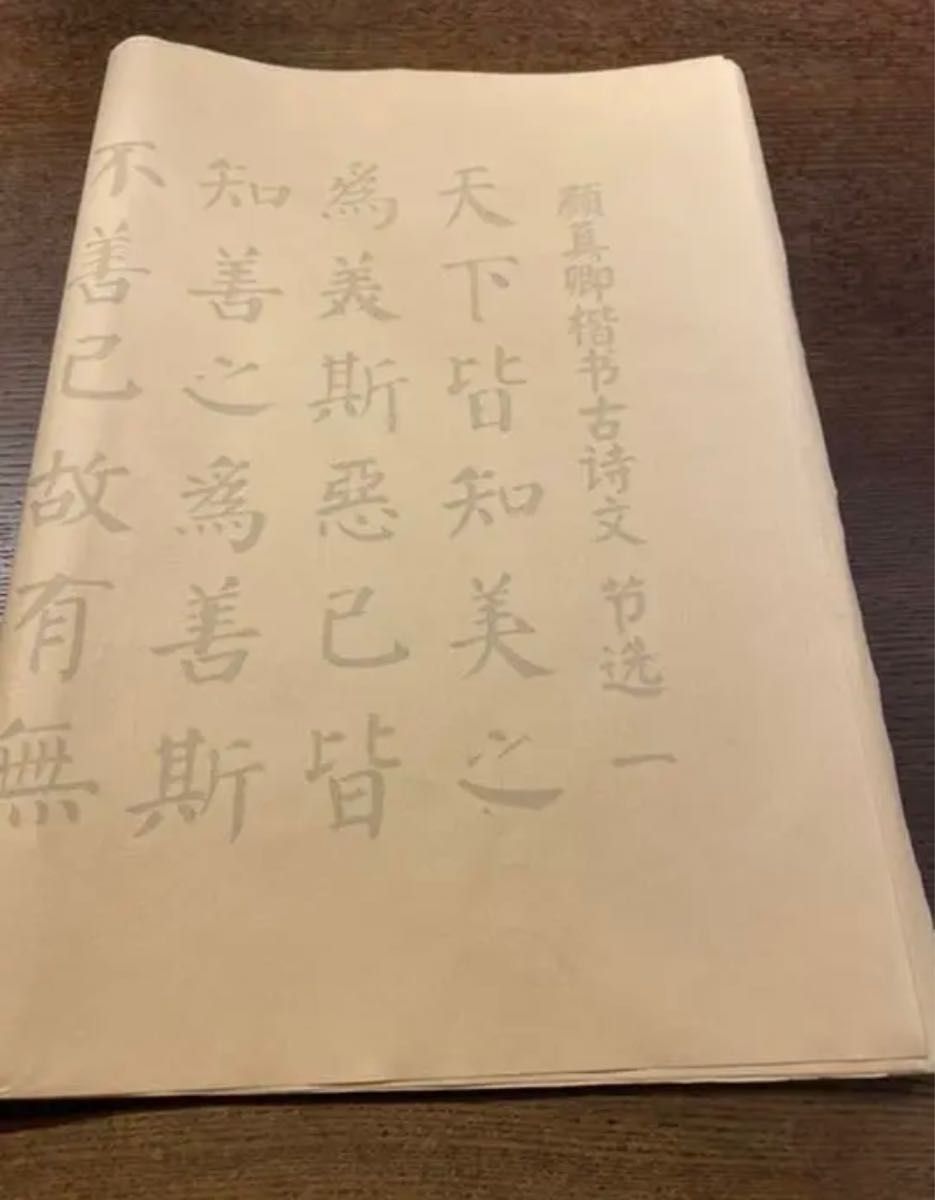 顏真卿楷书古诗文 节选一
天下皆知美之
爲美斯惡已皆
知善之爲善斯
不善已故有無